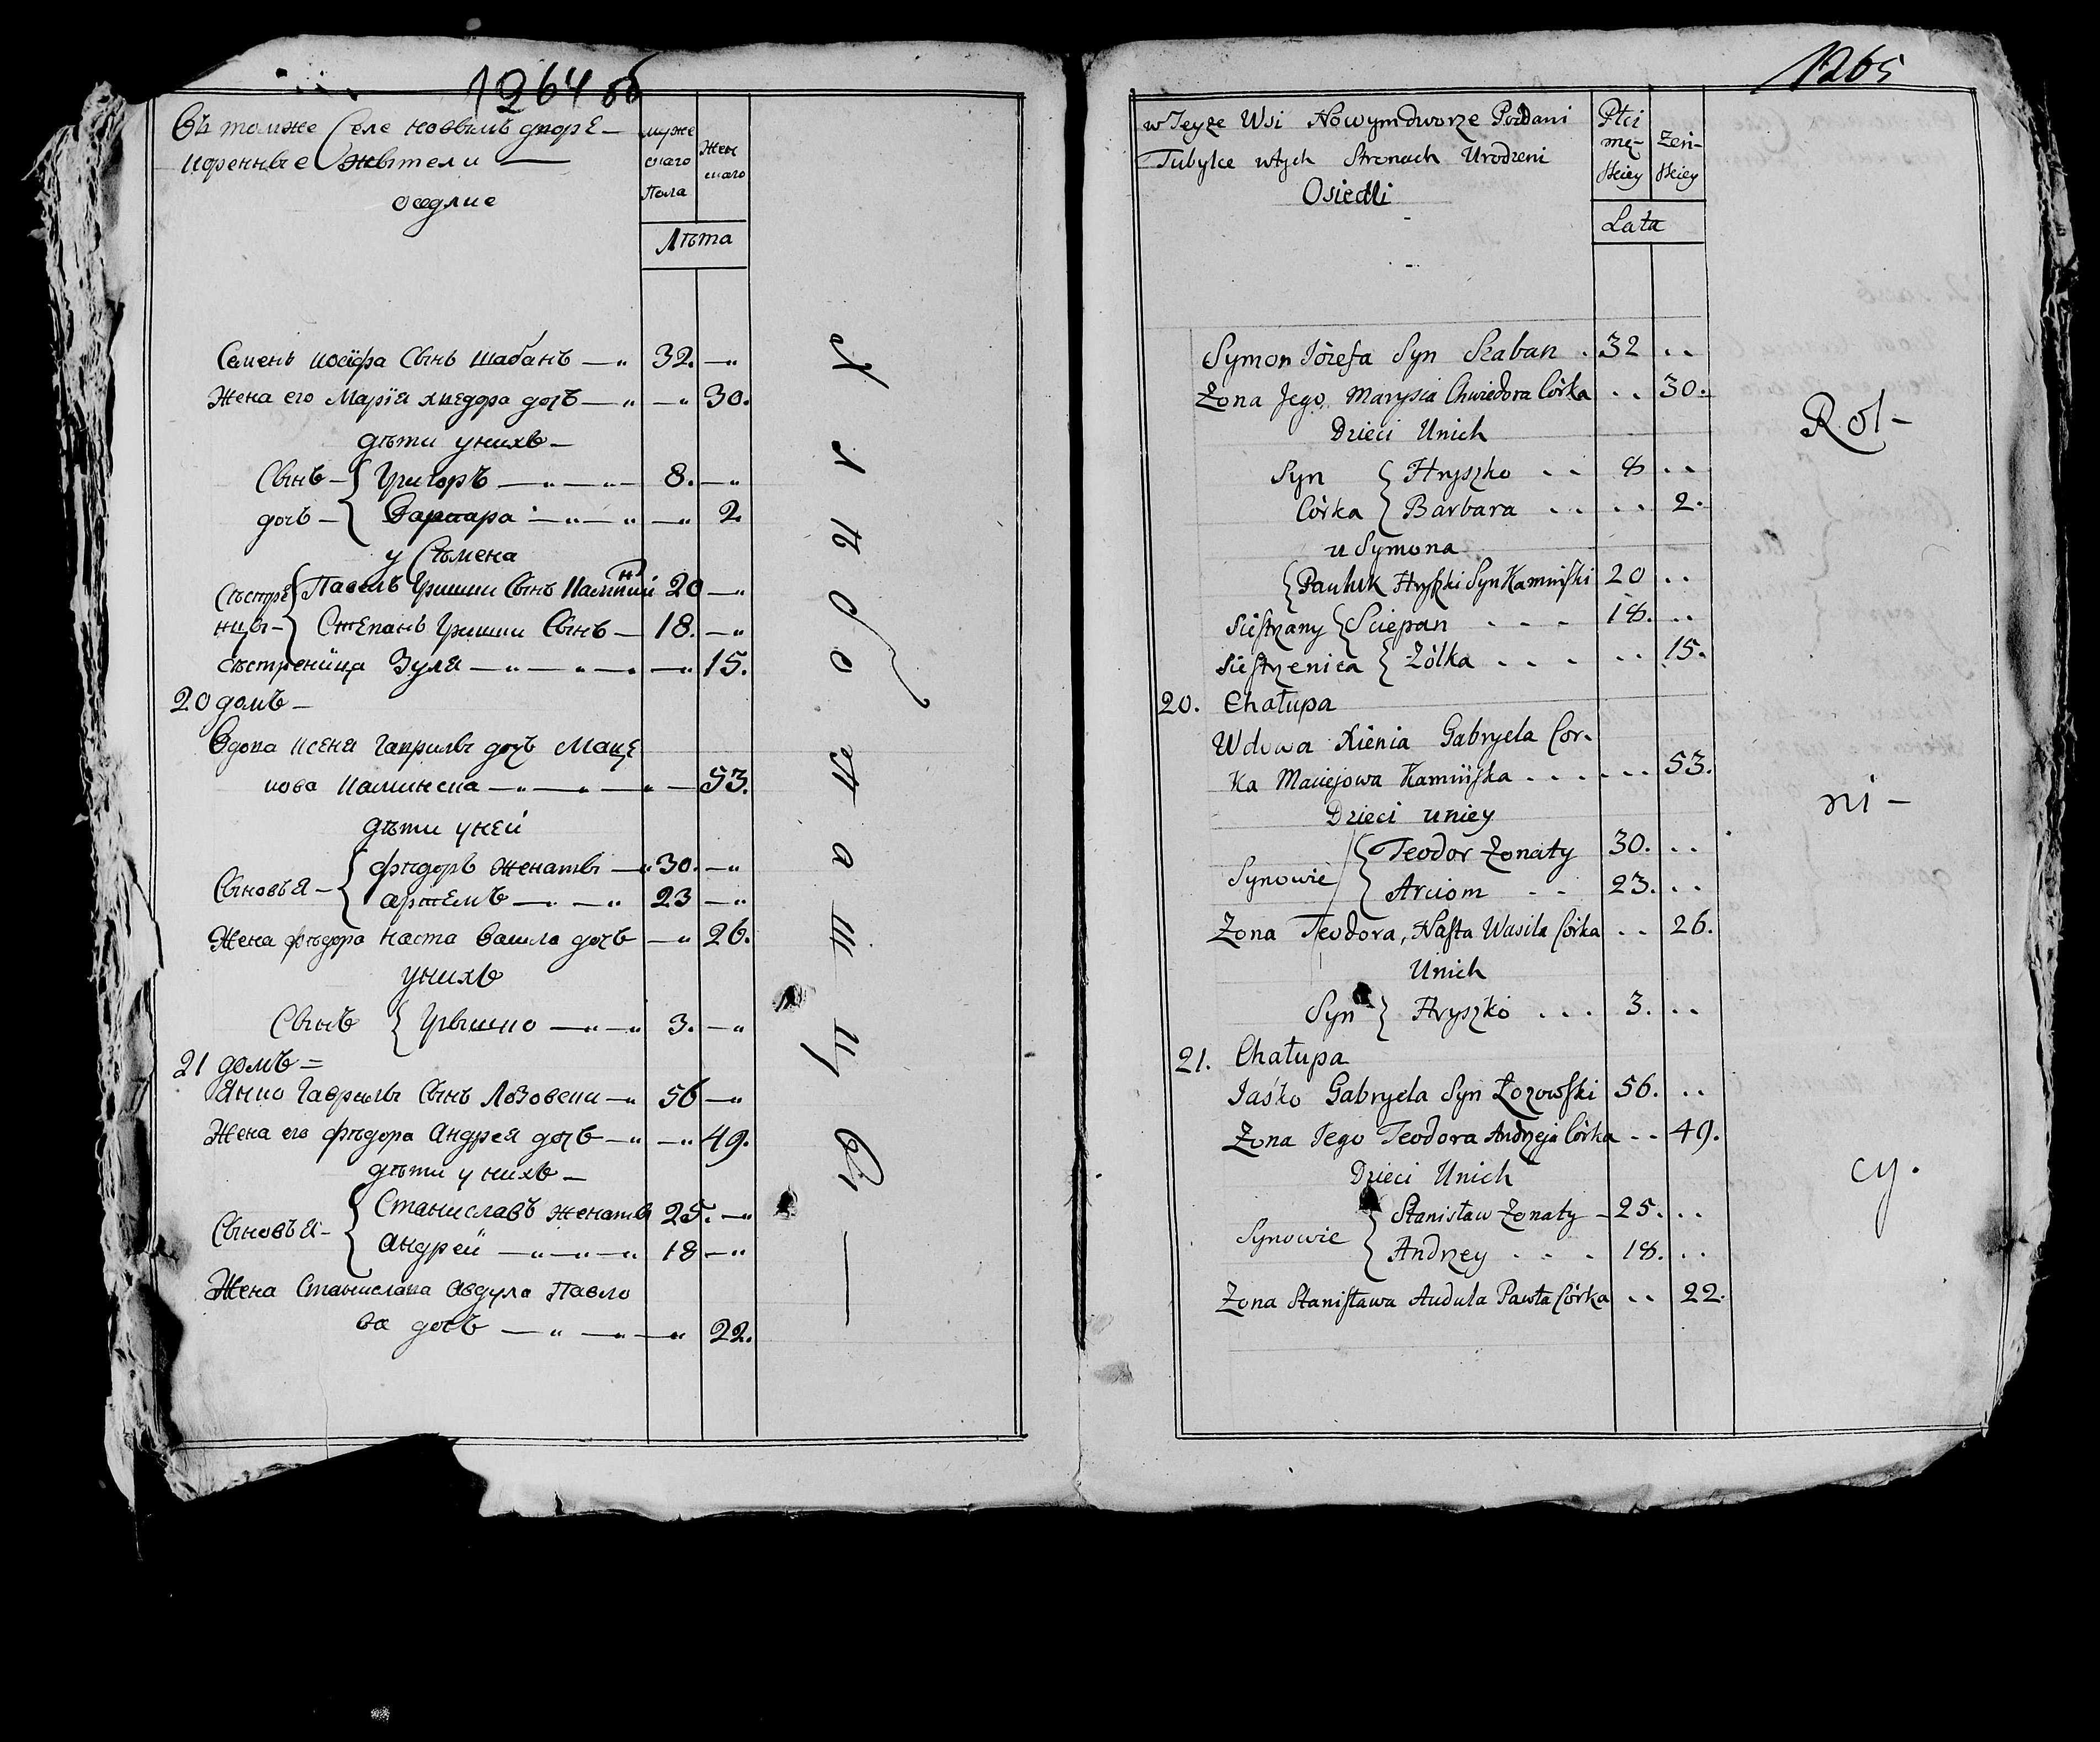 1264 об
Въ томже Селе новымъ дворе —
коренные Жытели —
оседлие
муже
скаго
Пола
Жен
скаго
Лѣта
Семенъ иосифа Сынъ шабанъ — 32. —
Жена его Марїя хведора дочъ — — 30.
дѣти унихъ —
Сынъ — { Григоръ — — 8. —
дочъ — { Варвара — — — 2
у Сѣмена
Сѣстре { Павелъ Гришки Сынъ Каминский 20 —
нцы — } Степанъ Гришки Сынъ — 18. —
сѣстреница Зуля — — — — 15.
20 домъ —
Вдова ксеня Гаврилы дочъ Маце
иова каминска — — — — 53.
дѣти уней
Сыновья — { фѣдоръ женаты — 30. —
артемъ — — 23 —
Жена фѣдора наста Васила дочъ — 26.
унихъ
Сынъ { Грышко — — 3. —
21 домъ =
Янко Гаврилы Сынъ Лозовски — 56 —
Жена его фѣдора Андрея дочъ — — 49.
дѣти у нихъ —
Сыновья — { Станиславъ женаты 25. —
Андрей — — — 18 —
Жена Станислава Авдула Павло
ва дочъ — — — 22.
1265
w Teyże Wsi Nowymdworze Poddani
Tubylce wtych Stronach Urodzeni
Osiedli
Płci
mę-
skiey
żeń-
skiey
Lata
Symon Józefa Syn Szaban . 32 ..
Żona Jego Marysia Chwiedora Córka .. 30.
Dzieci Unich
Syn { Hryszko .. 8 ..
Córka { Barbara .. .. 2.
u Symona
{ Pauluk Hryszki Syn Kamiński 20 ..
Siestrzany { Sciepan . . . 18. ..
Siestrzenica { Żólka . . . .. 15.
20. Chałupa
Wdowa Xienia Gabryela Cor-
ka Maciejowa Kamińska . . . . . . 53.
Dzieci uniey
Synowie { Teodor żonaty 30. ..
Arciom .. 23. ..
Żona Teodora, Nasta Wasila Córka .. 26.
Unich
Syn { Hryszko . . . 3. ..
21. Chałupa
Jaśko Gabryela Syn Łozowski 56. ..
Żona Jego Teodora Andrzeja Córka .. 49.
Dzieci Unich
Synowie { Stanisław żonaty - 25. ..
Andrzey . . . 18. ..
Żona Stanisława Audula Pawła Córka .. 22.
Rol-
ni-
cy.